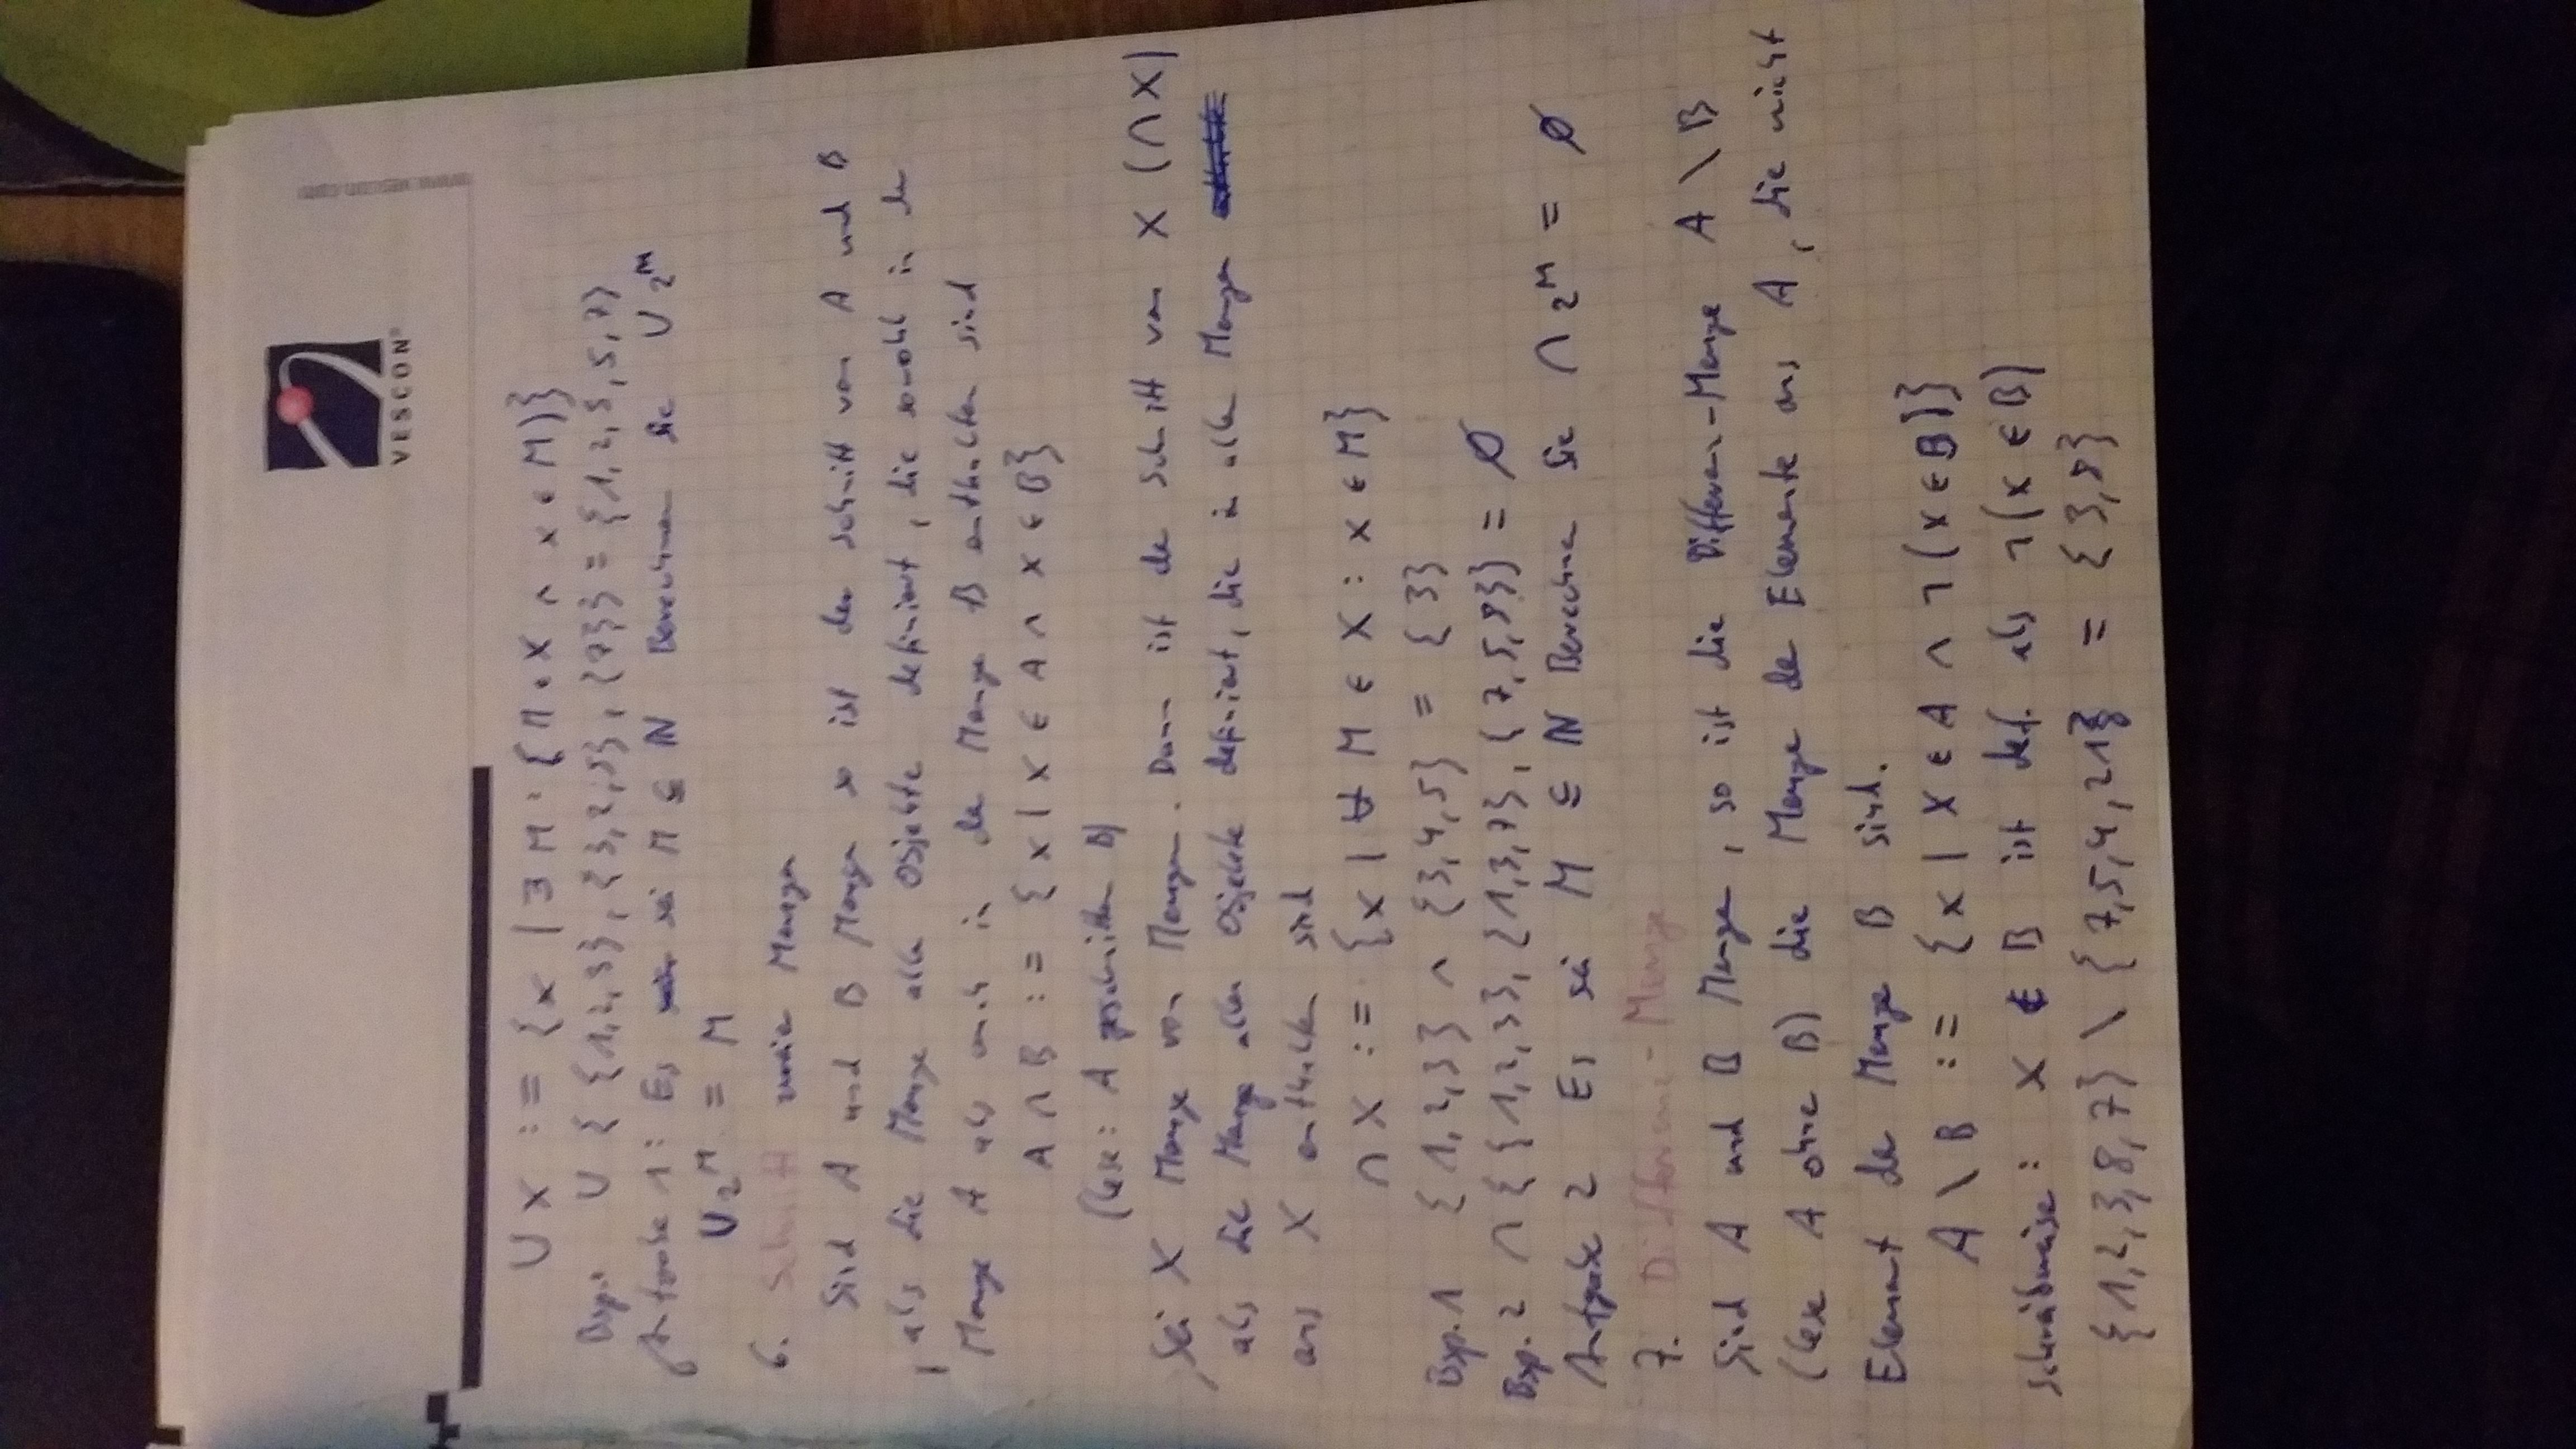 VESCON
www.vescon.com
∪ X := {x | ∃ M : (M ∈ X ∧ x ∈ M)}
Bsp.: ∪ { {1,2,3}, {3,2,5}, {7}} = {1,2,3,5,7}
Aufgabe 1: Es sei M ⊆ ℕ Berechnen Sie ∪ 2^M
∪ 2^M = M
6. Schnitt zweier Mengen
Sind A und B Mengen so ist der Schnitt von A und B
, als die Menge aller Objekte definiert, die sowohl in der
Menge A als auch in der Menge B enthalten sind
A ∩ B := { x | x ∈ A ∧ x ∈ B}
(lese: A geschnitten B)
Sei X Menge von Mengen. Dann ist der Schnitt von X (∩ X)
als die Menge aller Objekte definiert, die in allen Mengen
aus X enthalten sind
∩ X := {x | ∀ M ∈ X : x ∈ M}
Bsp. 1 {1,2,3} ∩ {3,4,5} = {3}
Bsp. 2 ∩ { {1,2,3}, {1,3,7}, {7,5,8}} = ∅
Aufgabe 2 Es sei M ⊆ ℕ Berechnen Sie ∩ 2^M = ∅
7. Differenz-Menge
Sind A und B Mengen, so ist die Differenz-Menge A \ B
(lese A ohne B) die Menge der Elemente aus A, die nicht
Element der Menge B sind.
A \ B := {x | x ∈ A ∧ ¬(x ∈ B)}
Schreibweise: x ∉ B ist def. als ¬(x ∈ B)
{1,2,3,8,7} \ {7,5,4,21} = {3,8}